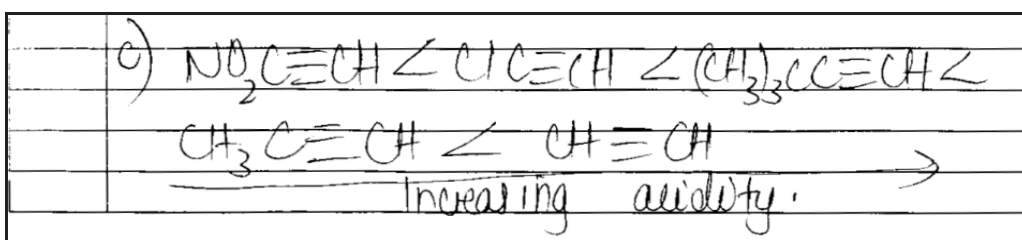 c) NO₂C≡CH < ClC≡CH < (CH₃)₃CC≡CH <
CH₃C≡CH < CH≡CH
Increasing acidity.